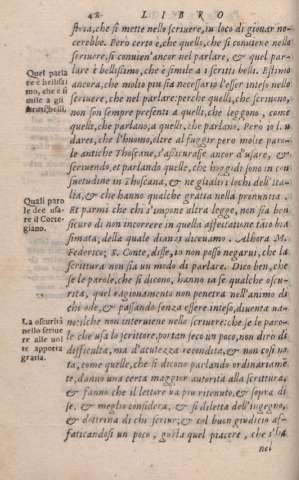 42 LIBRO
stria, che si mette nello scriuere, in loco di giouar no-
cerebbe. Però certo è, che quello, che si conuiene nello
scriuere, si conuien'ancor nel parlare, & quel par-
lare è bellissimo, che è simile a i scritti belli. Estimo
ancora, che molto piu sia necessario l'esser inteso nello
scriuere, che nel parlare: perche quelli, che scriuono,
non son sempre presenti a quelli, che leggono, come
quelli, che parlano, a quelli, che parlano. Però io l.
darei, che l'huomo, oltre al fuggir pero molte paro-
le antiche Thoscane, s'assicurasse ancor d'usare, &
scriuendo, et parlando quelle, che hoggidì sono in con
suetudine in Thoscana, & ne gli altri lochi dell'ita-
lia, & che hanno qualche gratia nella pronuntia.
Et parmi che chi s'impone altra legge, non sia ben
sicuro di non incorrere in quella affettatione tãto bia
simata, della quale dianzi diceuamo. Alhora M.
Federico; S. Conte, disse, io non posso negarui, che la
scrittura non sia un modo di parlare. Dico ben, che
se le parole, che si dicono, hanno in se qualche oscu-
rità, quel ragionamento non penetra nell'animo di
chi ode, & passando senza essere inteso, diuenta ua-
no: ilche non interuiene nello scriuere: che se le paro-
le che usa lo scrittore, portan seco un poco, non dirò di
difficulta, ma d'acutezza recondita, & non così no
ta, come quelle, che si dicono parlando ordinariamẽ
te, danno una certa maggior autorità alla scrittura,
& fanno che il lettore ua piu ritenuto, & sopra di
se, & meglio considera, & si diletta dell'ingegno,
& dottrina di chi scriue; & col buon giudicio af-
faticandosi un poco, gusta quel piacere, che s'ha
nel
Quel parla
re è bellissi
mo, che è si
mile a gli
scritti belli.
Quali paro
le dee usa-
re il Corte-
giano.
La oscurità
nello scriue
re alle uol
te apporta
gratia.